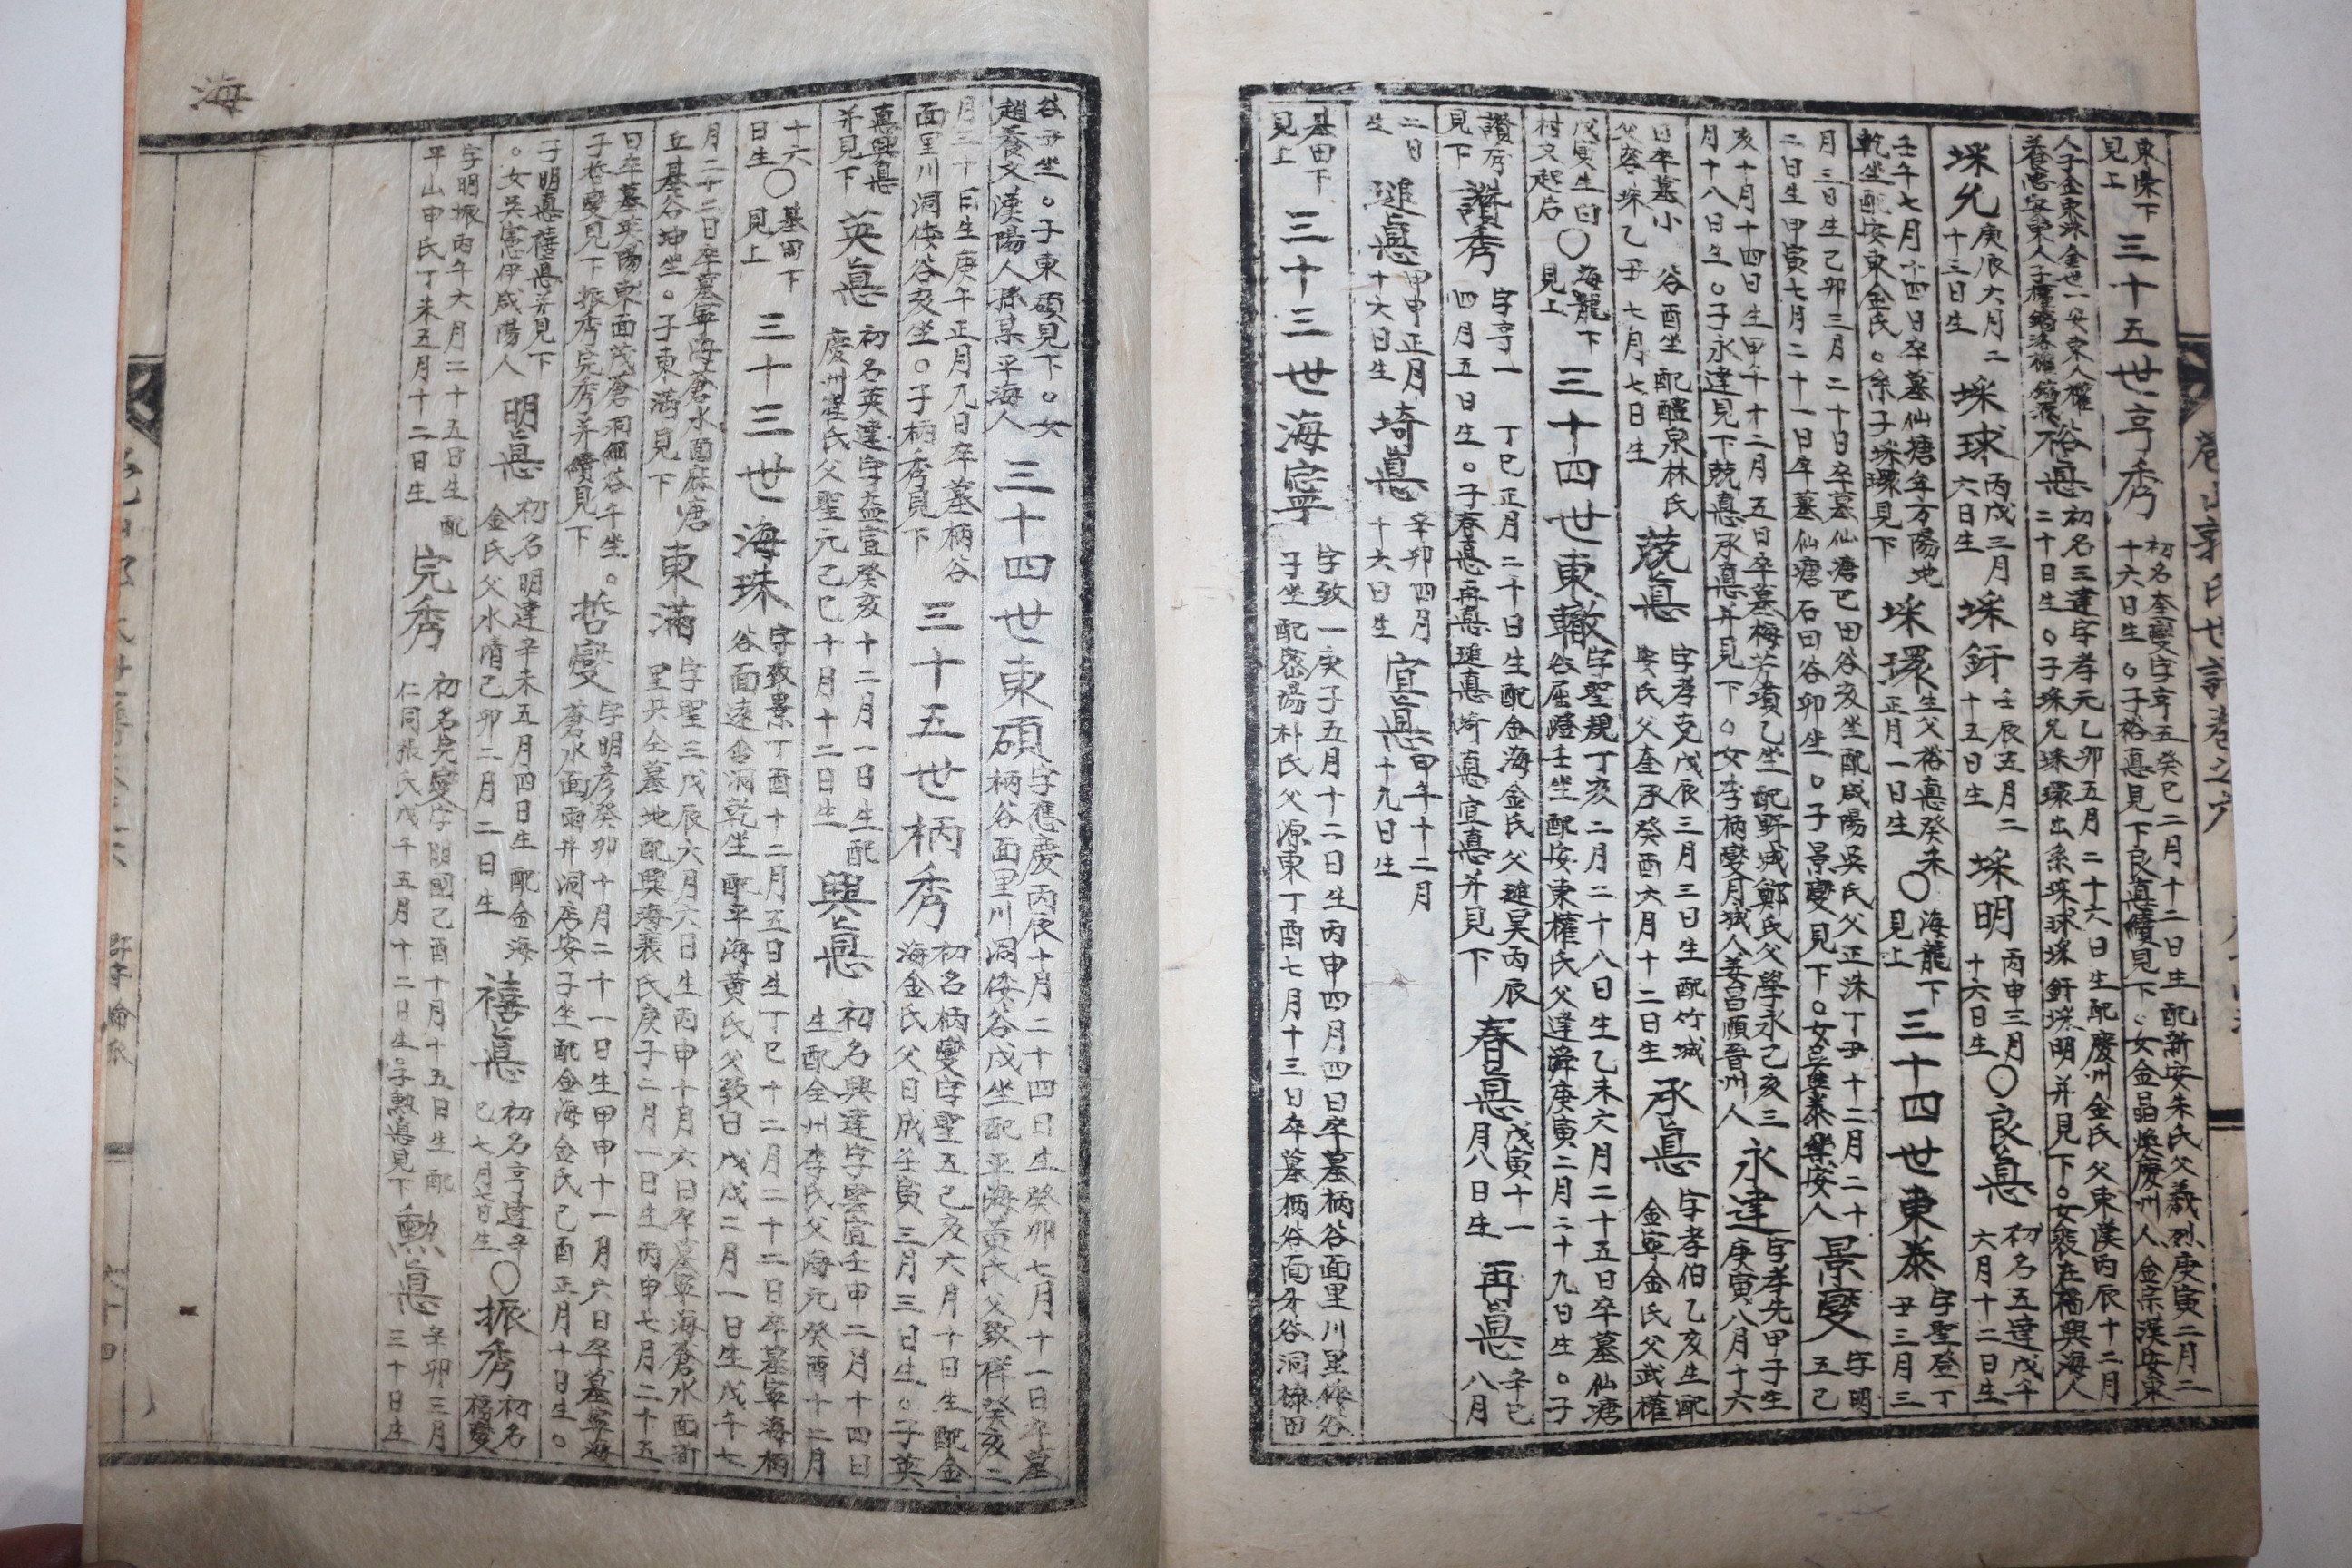 三十五世亨秀初名奎燮字亨五癸巳二月十二日生配新安朱氏父羲烈庚寅二月二十六日生。子裕悳見下良悳續見下。女金晶煥慶州人金宗漢安東
人子金東洙金世一安東人權 裕悳初名三達字孝元乙卯五月二十六日生配慶州金氏父東漢丙辰十二月二十日生。子埰允埰環出系埰球埰釪埰明并見下。女裵在福興海人
埰允庚辰六月二十三日生 埰球丙戌三月六日生 埰釪壬辰五月二十五日生 埰明丙申三月十六日生〇良悳初名五達戊午六月十二日生
壬午七月十四日卒墓仙塘年方陽地乾坐配安東金氏。系子埰環見下 埰環生父裕悳癸未正月一日生〇海龍下見上 三十四世東泰字聖登丁丑三月三
月三日生己卯三月二十日卒墓仙塘巴田谷亥坐配咸陽吳氏父正洙丁丑十二月二十二日生甲寅七月二十一日卒墓仙塘石田谷卯坐。子景燮見下。女吳華泰樂安人 景燮字明五己
亥十月十四日生甲午十二月五日卒墓梅芳墳乙坐配野城鄭氏父學永己亥三月十八日生。子永達見下兢悳承悳并見下。女李柄燮月城人姜昌順晉州人 永達字孝先甲子生庚寅八月十六
日卒墓小谷酉坐配醴泉林氏父容珠乙丑七月七日生 兢悳字孝克戊辰三月三日生配竹城安氏父奎承癸酉六月十二日生 承悳字孝伯乙亥生配金寧金氏父武權
戊寅生旧村文起后〇海龍下見上 三十四世東轍字聖規丁亥二月二十八日生乙未六月二十五日卒墓仙塘谷屈隆壬坐配安東權氏父達舜庚寅二月二十九日生。子
讚秀見下 讚秀字亨一丁巳正月二十日生配金海金氏父璡昊丙辰四月五日生。子春悳再悳璡悳埼悳宜悳并見下 春悳戊寅十一月八日生 再悳辛巳八月
二日生 璡悳甲申正月十六日生 埼悳辛卯四月十六日生 宜悳甲午十二月十九日生
基田下見上 三十三世海寧字致一庚子五月十二日生丙申四月四日卒墓柄谷面里川里倭谷子坐配密陽朴氏父源東丁酉七月十三日卒墓柄谷面牙谷洞楝田
谷丑坐。子東碩見下。女趙養文漢陽人孫某平海人 三十四世東碩字應慶丙辰十月二十四日生癸卯七月十一日卒墓柄谷面里川洞倭谷戌坐配平海黄氏父致祥癸亥二
月三十日生庚午正月九日卒墓柄谷面里川洞倭谷亥坐。子柄秀見下 三十五世柄秀初名柄燮字聖五己亥六月十日生配金海金氏父日成壬寅三月三日生。子英
悳興悳并見下 英悳初名英達字益宣癸亥十二月一日生配慶州崔氏父聖元己巳十月十二日生 興悳初名興達字雲宣壬申二月十四日生配全州李氏父海元癸酉十二月
十六日生〇基田下見上 三十三世海珠字致景丁酉十二月五日生丁巳十二月二十二日卒墓寧海柄谷面遠舍洞乾坐配平海黄氏父致日戊戌二月一日生戊午七
月二十二日卒墓寧海蒼水面麻唐丘基谷坤坐。子東滿見下 東滿字聖三戊辰六月六日生丙申十月六日卒墓寧海蒼水面新里共仝墓地配興海裵氏庚子二月一日生丙申七月二十五
日卒墓英陽東面茂蒼洞細谷午坐。子哲燮見下振秀完秀并續見下 哲燮字明彦癸卯十月二十一日生甲申十一月六日卒墓寧海蒼水面雨井洞店安子坐配金海金氏己酉正月十日生。
子明悳禧悳并見下。女吳憲伊咸陽人 明悳初名明達辛未五月四日生配金海金氏父水清己卯二月二日生 禧悳初名亨達辛巳七月七日生〇振秀初名福燮
字明振丙午六月二十五日生配平山申氏丁未五月十二日生 完秀初名完燮字明國己酉十月十五日生配仁同張氏戊午五月十二日生子勲悳見下 勲悳辛卯三月三十日生
海
六十四